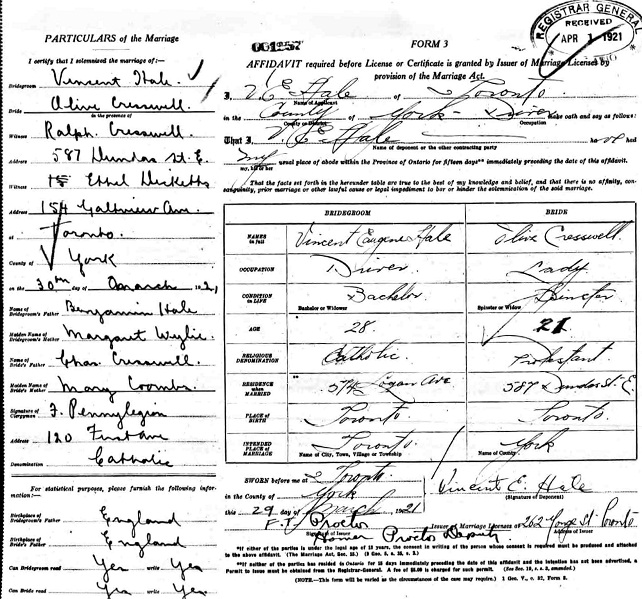 PARTICULARS of the Marriage
I certify that I solemnized the marriage of:
Bridegroom Vincent Hale
Bride Olive Cresswell
in the presence of
Witness Ralph Cresswell
Address 587 Dundas St. E.
Witness Ethel Ricketts
Address 154 Galtview Ave.
at Toronto.
County of York
on the 30th day of March 1921
Name of Bridegroom's Father Benjamin Hale
Maiden Name of Bridegroom's Mother Margaret Wylie
Name of Bride's Father Chas. Cresswell.
Maiden Name of Bride's Mother Mary Coombs
Signature of Clergyman F. Pennylegion
Address 120 First Ave
Denomination Catholic
For statistical purposes, please furnish the following information:
Birthplace of Bridegroom's Father England
Birthplace of Bride's Father England
Can Bridegroom read Yes write Yes
Can Bride read Yes write Yes
REGISTRAR GENERAL
RECEIVED
APR 1 1921
001257
FORM 3
AFFIDAVIT required before License or Certificate is granted by Issuer of Marriage Licenses by
provision of the Marriage Act.
I, V. E. Hale of Toronto
Name of Applicant
in the County of York - Driver make oath and say as follows:
County or District Occupation
That I V. E. Hale
Name of deponent or the other contracting party
my usual place of abode within the Province of Ontario for fifteen days** immediately preceding the date of this affidavit.
my, his or her
That the facts set forth in the hereunder table are true to the best of my knowledge and belief, and that there is no affinity, consanguinity, prior marriage or other lawful cause or legal impediment to bar or hinder the solemnization of the said marriage.
BRIDEGROOM BRIDE
NAMES in full Vincent Eugene Hale Olive Cresswell
OCCUPATION Driver Lady
CONDITION IN LIFE Bachelor Spinster
Bachelor or Widower Spinster or Widow
AGE 28 21
RELIGIOUS DENOMINATION Catholic. Protestant
RESIDENCE when MARRIED ** 574 Logan Ave 587 Dundas St. E
PLACE OF BIRTH Toronto Toronto
INTENDED PLACE OF MARRIAGE Toronto York
Name of City, Town, Village or Township Name of County
SWORN before me at Toronto
in the County of York
this 29 day of March 1921
Vincent E. Hale
(Signature of Deponent)
F. T. Proctor Issuer of Marriage Licenses at 262 Yonge St Toronto
Signature of Issuer Address of Issuer
Homer Proctor Deputy
*If either of the parties is under the legal age of 18 years, the consent in writing of the person whose consent is required must be produced and attached to the above affidavit.
**If neither of the parties has resided in Ontario for 15 days immediately preceding the date of this affidavit and the intention has not been advertised, a Permit to Issue must be obtained from the Registrar-General.
(NOTE.—This form will be varied as the circumstances of the case may require.)